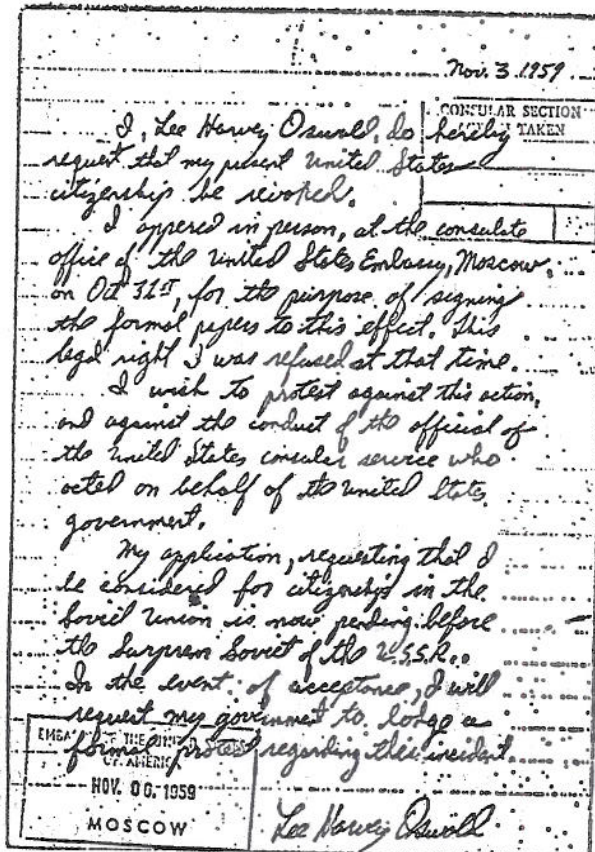 Nov. 3 1959
CONSULAR SECTION
TAKEN
I, Lee Harvey Oswald, do hereby
request that my present United States
citizenship be revoked.
I appered in person, at the consulate
office of the United States Embassy, Moscow,
on Oct 31st, for the purpose of signing
the formal papers to this effect. This
legal right I was refused at that time.
I wish to protest against this action,
and against the conduct of the official of
the United States consular service who
acted on behalf of the United States
government.
My application, requesting that I
be considered for citizenship in the
Soviet Union is now pending before
the Surprem Soviet of the U.S.S.R..
In the event of acceptance, I will
request my government to lodge a
formal protest regarding this incident.
Lee Harvey Oswald
OF THE
OF AMERICA
NOV. 06. 1959
MOSCOW